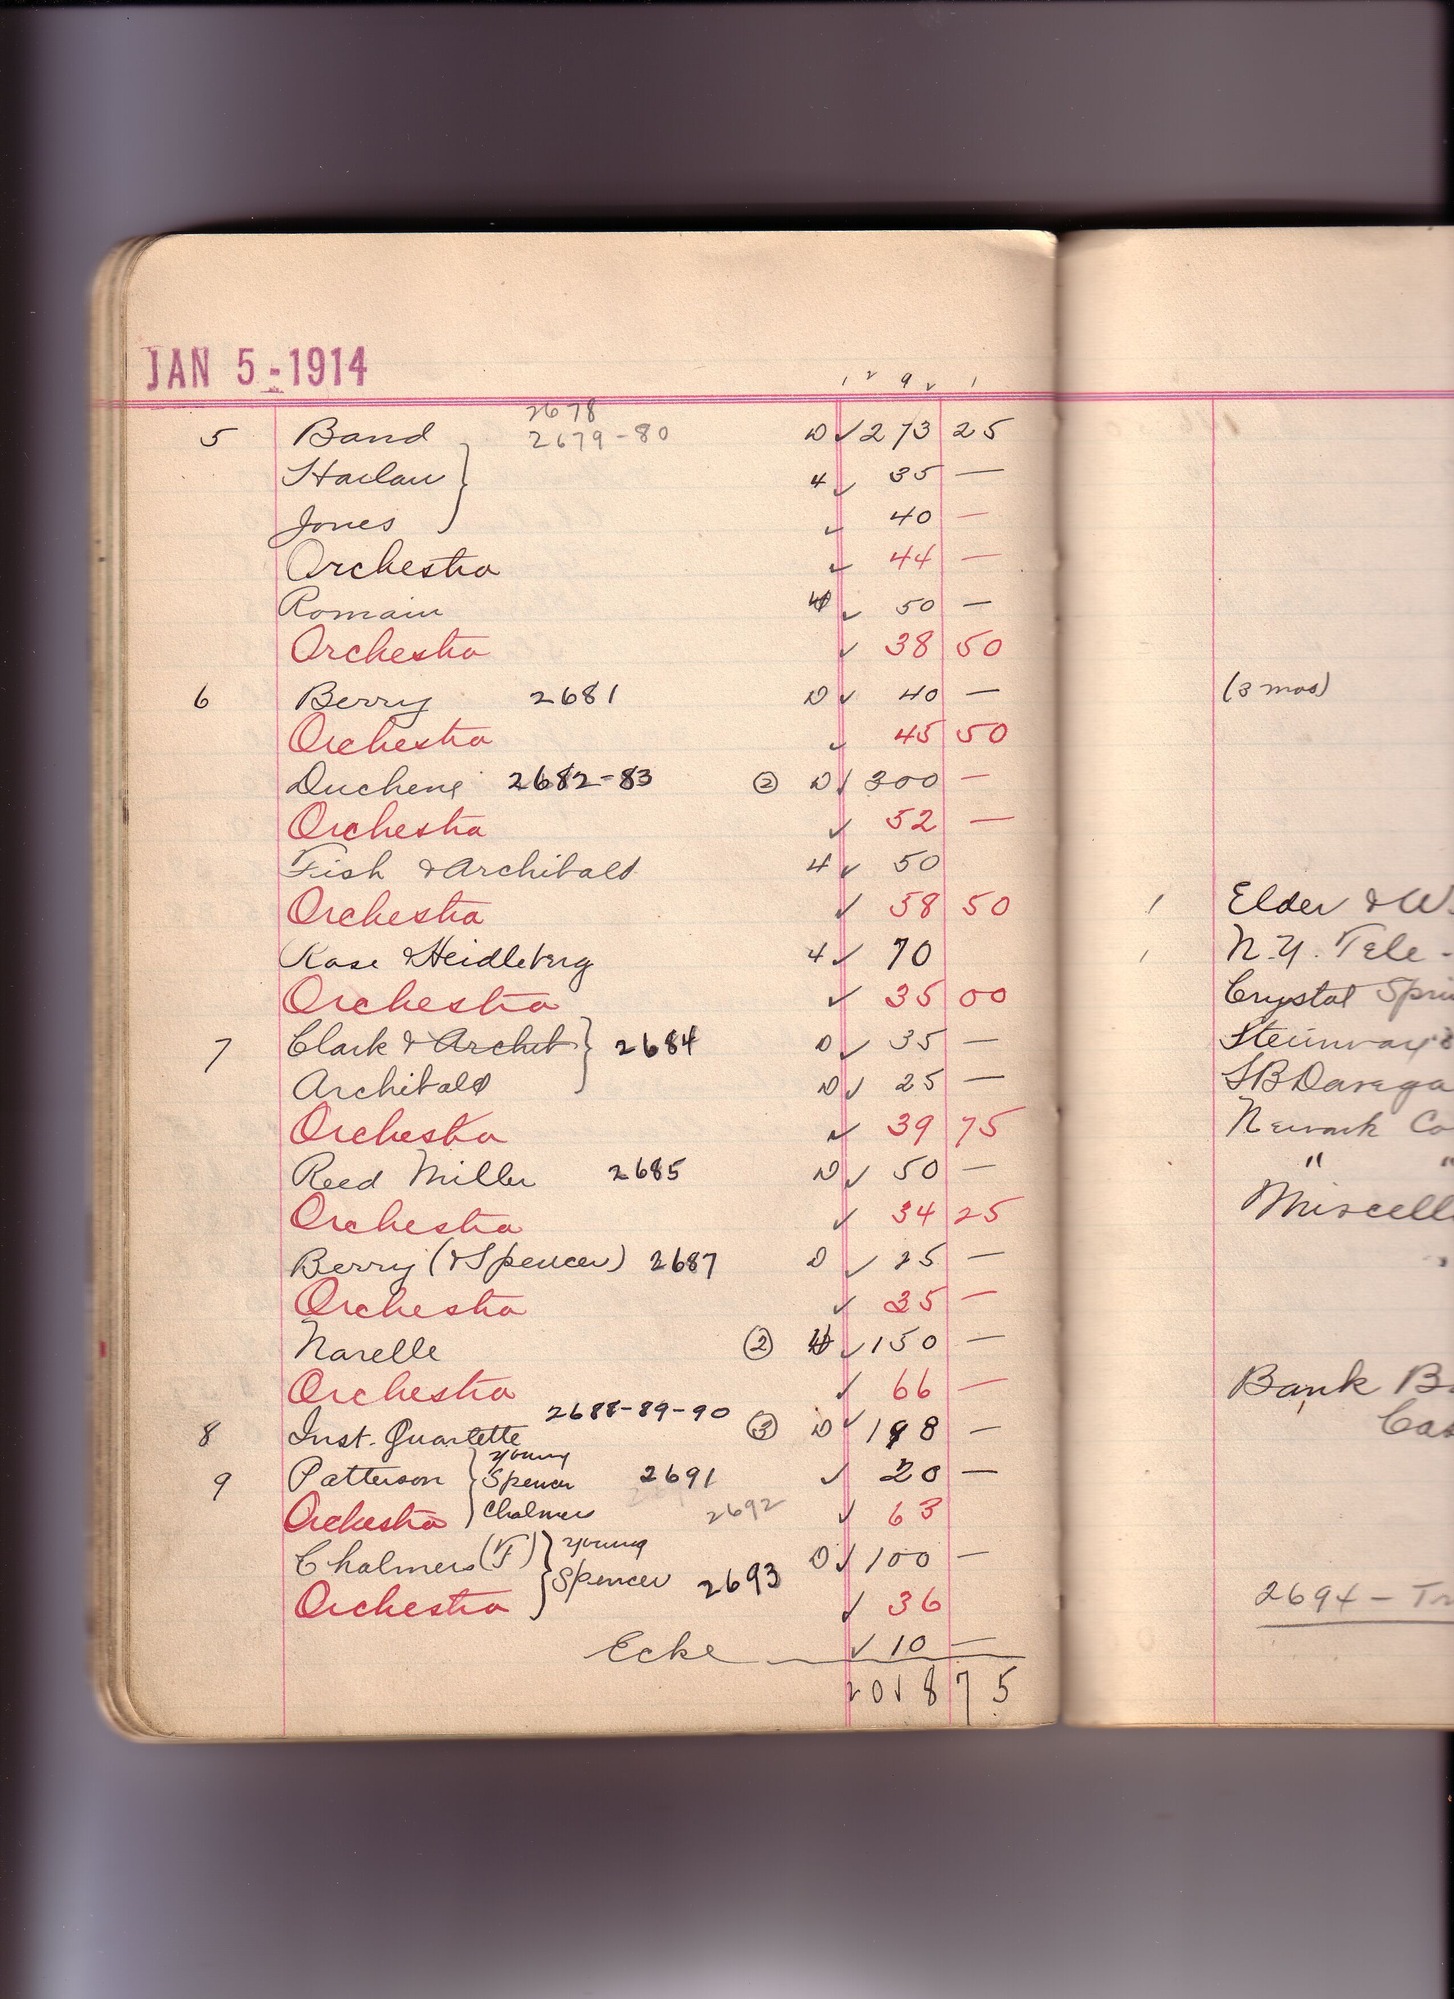 JAN 5-1914
1 2 9 2 1
2678
5 Band 2679-80 D ✓ 273 25
Harlan } 4 ✓ 35 —
Jones ✓ 40 —
Orchestra ✓ 44 —
Romain ✓ 50 —
Orchestra ✓ 38 50
6 Berry 2681 D ✓ 40 —
Orchestra ✓ 45 50
Duchene 2682-83 ② D ✓ 300 —
Orchestra ✓ 52 —
Fish & Archibald 4 ✓ 50
Orchestra ✓ 58 50
Rose & Heidleberg 4 ✓ 70
Orchestra ✓ 35 00
7 Clark & Archib } 2684 D ✓ 35 —
Archibald D ✓ 25 —
Orchestra ✓ 39 75
Reed Miller 2685 D ✓ 50 —
Orchestra ✓ 34 25
Berry (& Spencer) 2687 D ✓ 25 —
Orchestra ✓ 35 —
Narelle ② ✓ 150 —
Orchestra ✓ 66 —
2688-89-90
8 Inst. Quartette ③ D ✓ 198 —
Young
9 Patterson { Spencer 2691 ✓ 20 —
Orchestra Chalmers 2692 ✓ 63
Chalmers (T) } Young D ✓ 100 —
Spencer 2693
Orchestra ✓ 36
Ecke ✓ 10 —
2018 75
(3 mos)
1 Elder & W.
1 N.Y. Tele -
Crystal Sprin
Steinway &
SB Davega
Newark Co
" "
Miscell
Bank B
Cas
2694 - Tr